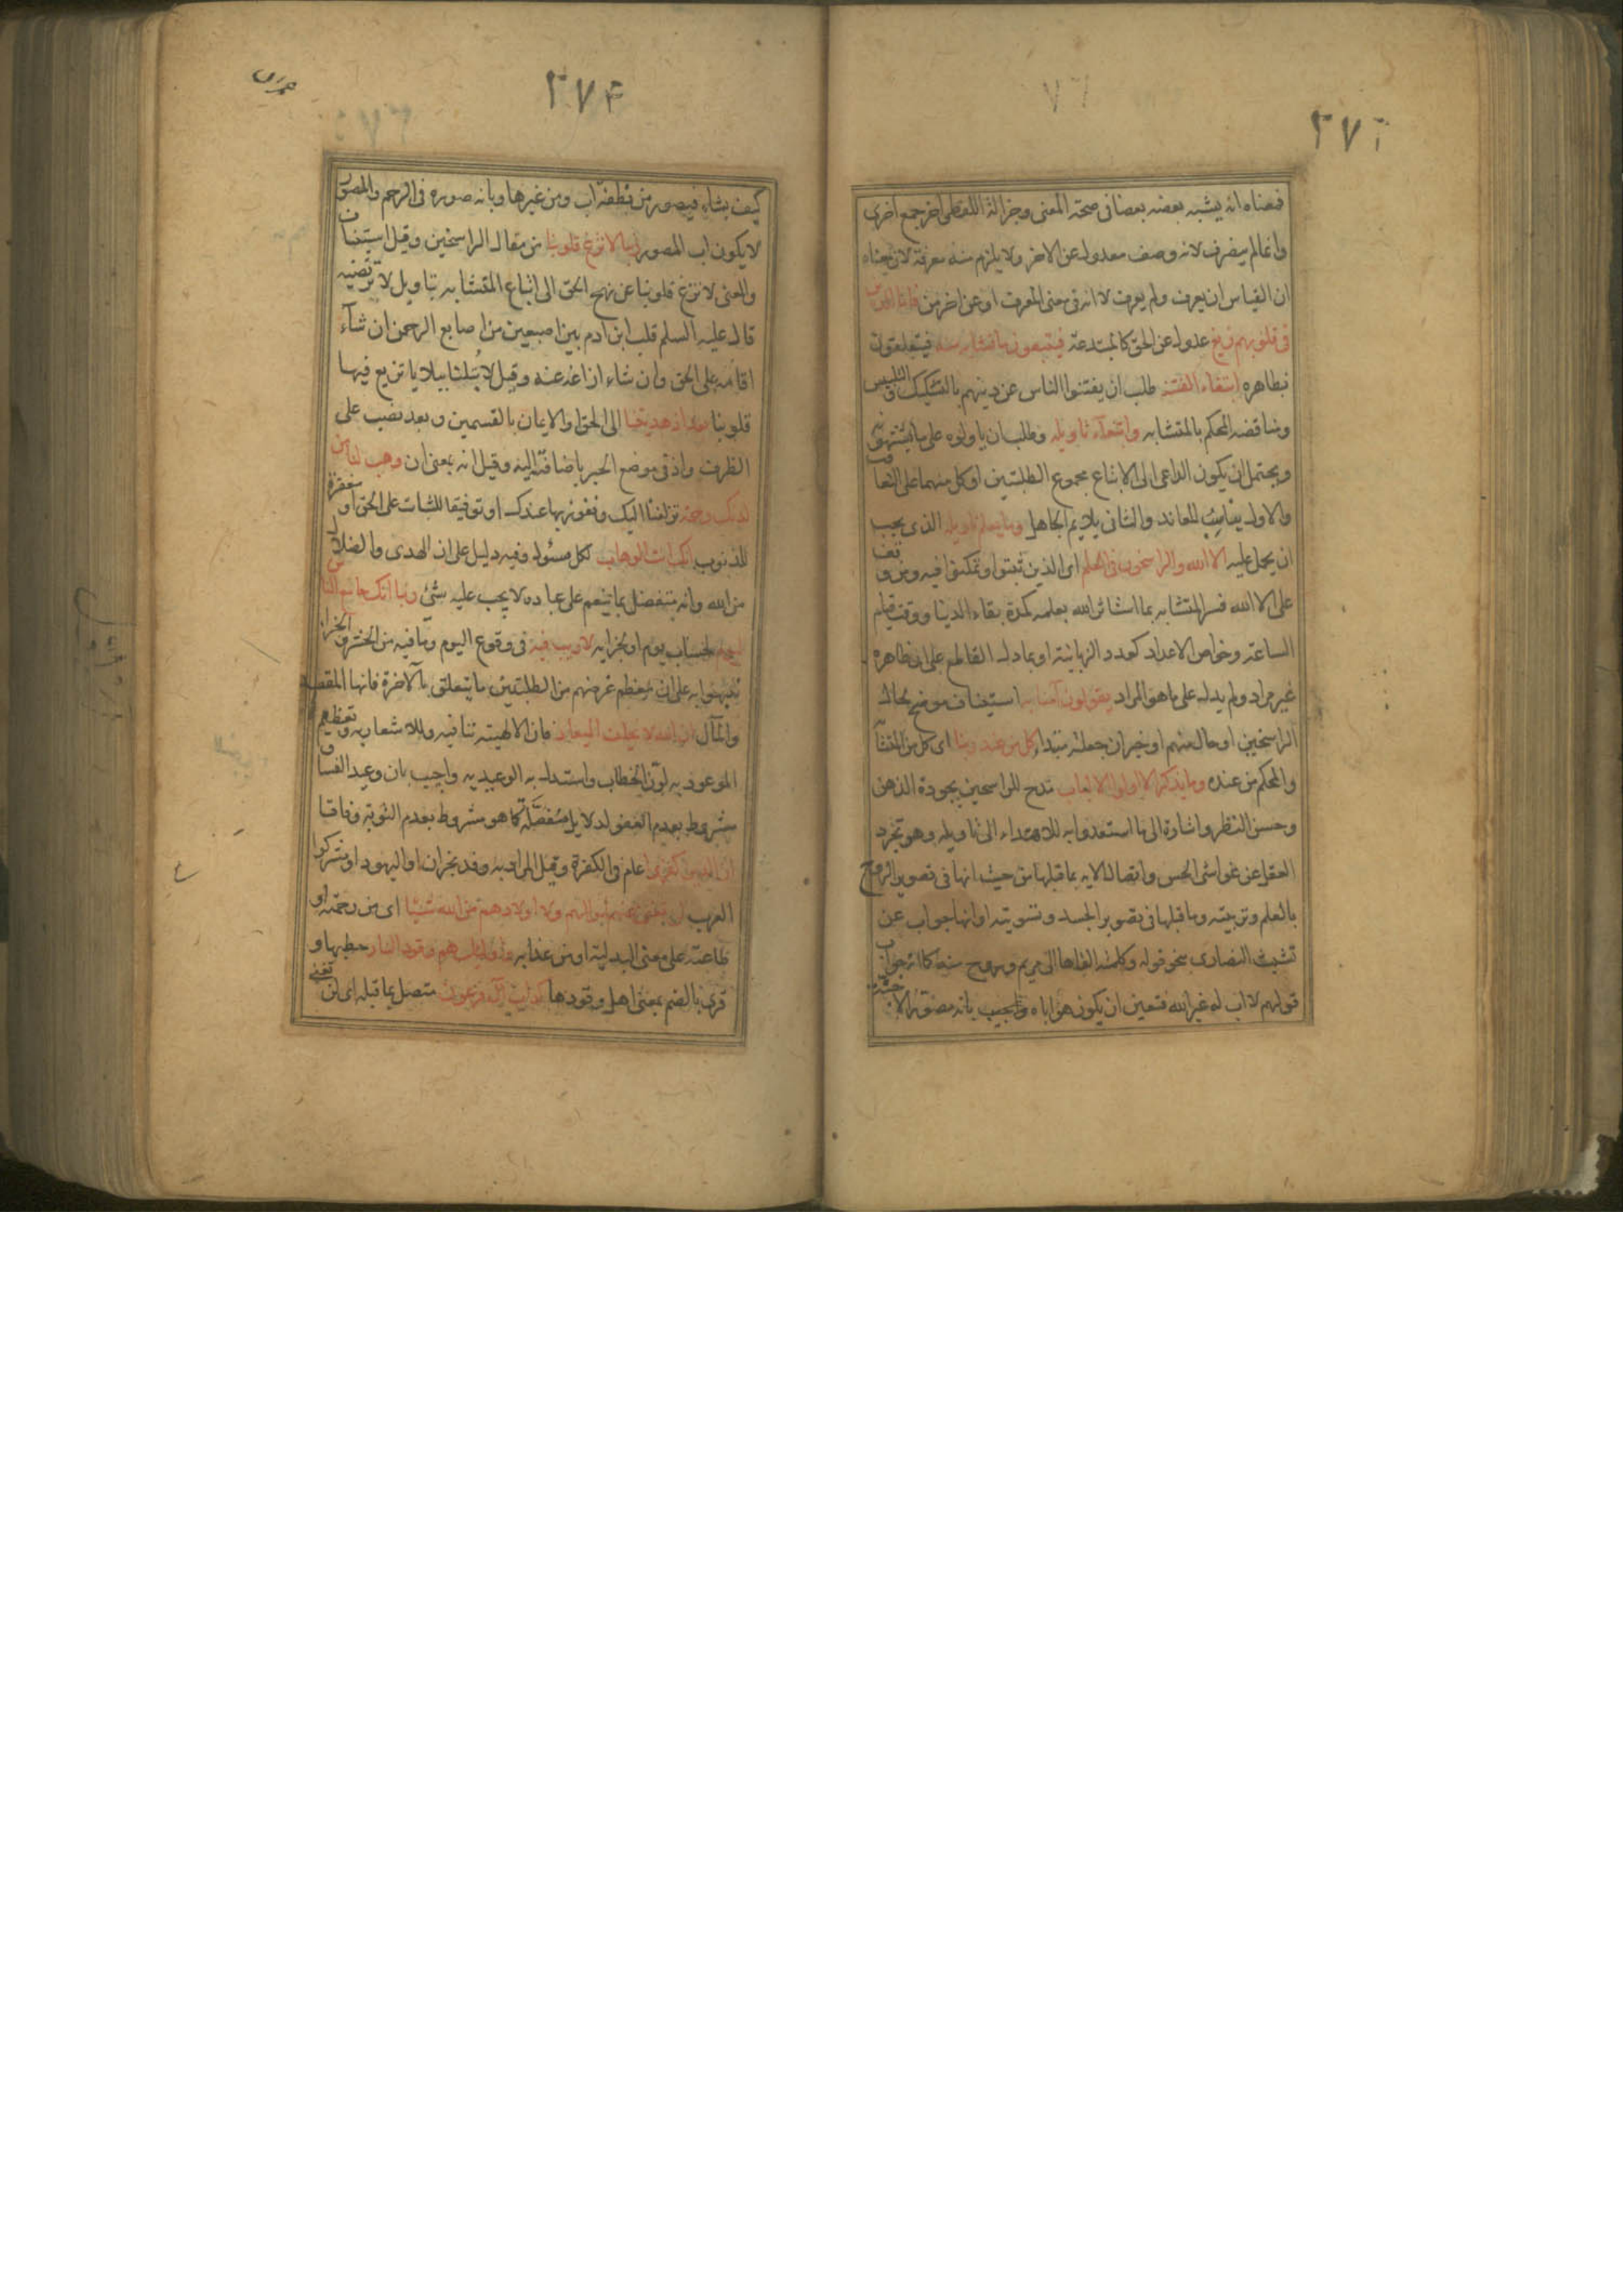 ٢٧٦
فمعناه انه يشبه بعضه بعضا فى صحة المعنى وجزالة اللفظ واخر جمع اخرى
وانما لم ينصرف لانه وصف معدول عن الاخر ولا يلزم منه معرفة لان معناه
ان القياس ان يعرف ولم يعرف لا انه فى معنى المعرف او عن اخر من فاما الذين
فى قلوبهم زيغ عدول عن الحق كالمبتدعة فيتبعون ما تشابه منه فيتعلقون
بظاهره ابتغاء الفتنة طلب ان يفتنوا الناس عن دينهم بالتشكيك والتلبيس
ومناقضة المحكم بالمتشابه وابتغآء تأويله وطلب ان ياولوه على ما يشتهونه
ويحتمل ان يكون الداعى الى الاتباع مجموع الطلبتين او كل منهما على التعاقب
والاول يناسب المعاند والثانى يلايم الجاهل وما يعلم تاويله الذى يجب
ان يحمل عليه الا الله والراسخون فى العلم اى الذين ثبتوا وتمكنوا فيه ومن وقف
على الا الله فسر المتشابه بما استاثر الله بعلمه كمدة بقاء الدنيا ووقت قيام
الساعة وخواص الاعداد كعدد الزبانية او بما دل القاطع على ان ظاهره
غير مراد ولم يدل على ما هو المراد يقولون آمنا به استيناف موضح لحال
الراسخين او حال منهم او خبر ان جعلته مبتدا كل من عند ربنا اى كل من المتشابه
والمحكم من عنده وما يذكر الا اولوا الالباب مدح للراسخين بجودة الذهن
وحسن النظر واشارة الى ما استعدوا به للاهتداء الى تاويله وهو تجرد
العقل عن غواشى الحس واتصال الايه بما قبلها من حيث انها فى تصوير الروح
بالعلم وتربيته وما قبلها فى تصوير الجسد وتسويته او انها جواب عن
تشبث النصارى بنحو قوله وكلمته القاها الى مريم وروح منه كما انه جواب
قولهم لا اب له غير الله فتعين ان يكون هو اباه واجيب بانه مصور الاجنة
٢٧٤
عمران
كيف يشاء فيصور من نطفة اب ومن غيرها وبانه صوره فى الرحم والمصور
لا يكون اب المصور ربنا لا تزغ قلوبنا من مقال الراسخين وقيل استيناف
والمعنى لا تزغ قلوبنا عن نهج الحق الى اتباع المتشابه بتاويل لا ترتضيه
قال عليه السلم قلب ابن ادم بين اصبعين من اصابع الرحمن ان شآء
اقامه على الحق وان شاء ازاغه عنه وقيل لا تبلنا ببلايا تزيغ فيها
قلوبنا بعد اذ هديتنا الى الحق او الايمان بالقسمين وبعد نصب على
الظرف واذ فى موضع الجر باضافته اليه وقيل انه بمعنى ان وهب لنا من
لدنك رحمة تزلفنا اليك ونفوز بها عندك او توفيقا للثبات على الحق او مغفرة
للذنوب انك انت الوهاب لكل مسئول وفيه دليل على ان الهدى والضلال
من الله وانه متفضل بما ينعم على عباده لا يجب عليه شئ ربنا انك جامع الناس
ليوم لحساب يوم او لجزايه لا ريب فيه فى وقوع اليوم وما فيه من الحشر والجزا
نبهوا به على ان معظم غرضهم من الطلبتين ما يتعلق بالآخرة فانها المقصد
والمآل ان الله لا يخلف الميعاد فان الالهية تنافيه وللاشعار به وتعظيم
الموعود به لون الخطاب واستدل به الوعيديه واجيب بان وعيد الفساق
مشروط بعدم العفو لدلايل منفصلة كما هو مشروط بعدم التوبة وفاقا
ان الذين كفروا عام والكفرة وقيل المراد به وفد نجران او اليهود او مشركوا
العرب لن تغنى عنهم اموالهم ولا اولادهم من الله شيئا اى من رحمته او
طاعته على معنى البدلية او من عذابه واولئك هم وقود النار حطبها و
قرئ بالضم بمعنى اهل وقودها كداب آل فرعون متصل بما قبله اى لن تغنى